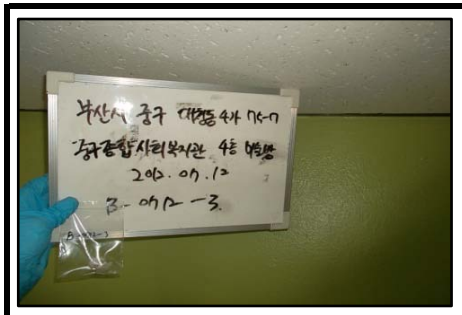 부산시 중구 대청동4가 75-7
중구종합사회복지관 4층
2012. 07. 12
B - 0712 - 3.
B-0712-3